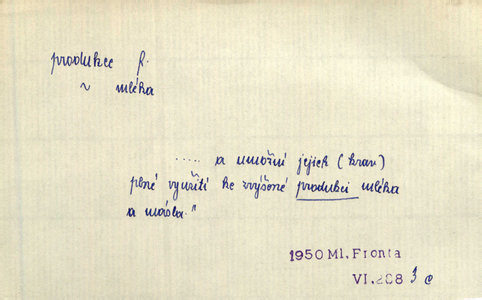 produkce f.
~ mléka
..... a umožní jejich (krav)
plné využití ke zvýšené produkci mléka
a másla."
1950 Ml. Fronta
VI.288 3 e